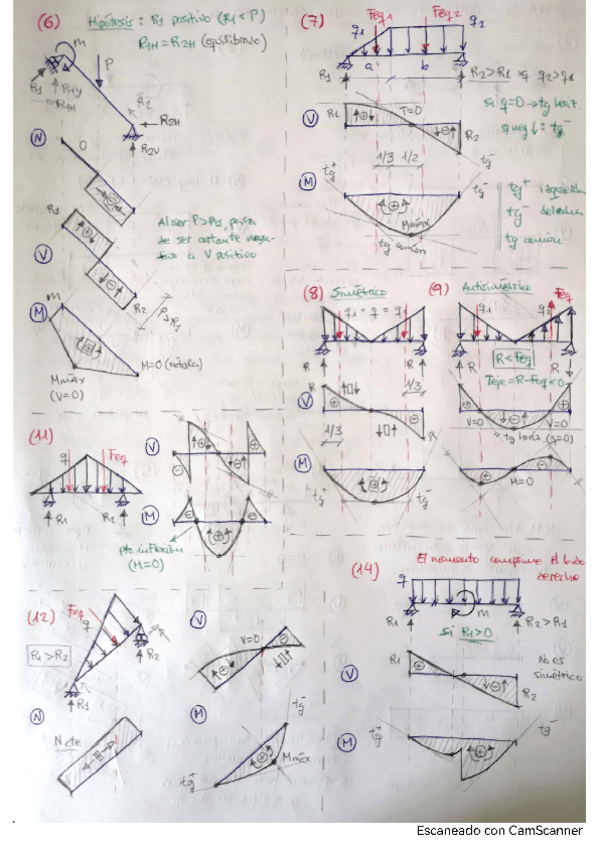 (6) Hipótesis: R1 positivo (R1 < P)
R1H = R2H (equilibrado)
m
P
R1
R1V
R1H
R2
R2H
R2V
N
0
R1
V
R2
Al ser P>R1, pasa
de ser cortante nega-
tivo a V positivo
P>R1
M
m
Mmáx
(V=0)
M=0 (rótula)
(7)
Feq1
Feq2
q1
q2
a
b
R1
R2>R1 xq q2>q1
si q=0 → tg horiz.
V
R1
T=0
R2
1/3
1/2
M
tg+
tg-
Mmáx
tg común
tg+ izquierda
tg- derecha
tg común
(8) Simétrico
q1 = q = q1
R
R
V
R
1/3
R
1/3
M
tg+
tg-
(9) Antisimétrico
Feq
q1
q2
R<Feq
R
R
Teje=R-Feq<0
V=0
V=0
tg horiz. (q=0)
M=0
(11)
q
Feq
R1
R2
V
M
pto inflexión
(M=0)
(12)
Feq
q
R1>R2
R2
R1
V
V=0
N
N cte
M
tg-
Mmáx
tg+
(14)
El momento comprime el lado
derecho
q
m
R1
R2>R1
si R1>0
V
R1
R2
No es
simétrico
M
tg+
tg-
Escaneado con CamScanner